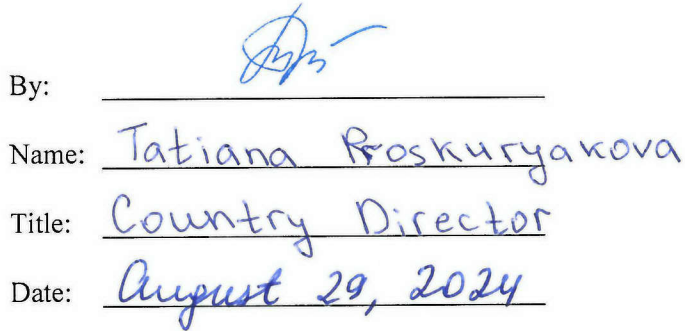 By:
Name: Tatiana Proskuryakova
Title: Country Director
Date: August 29, 2024